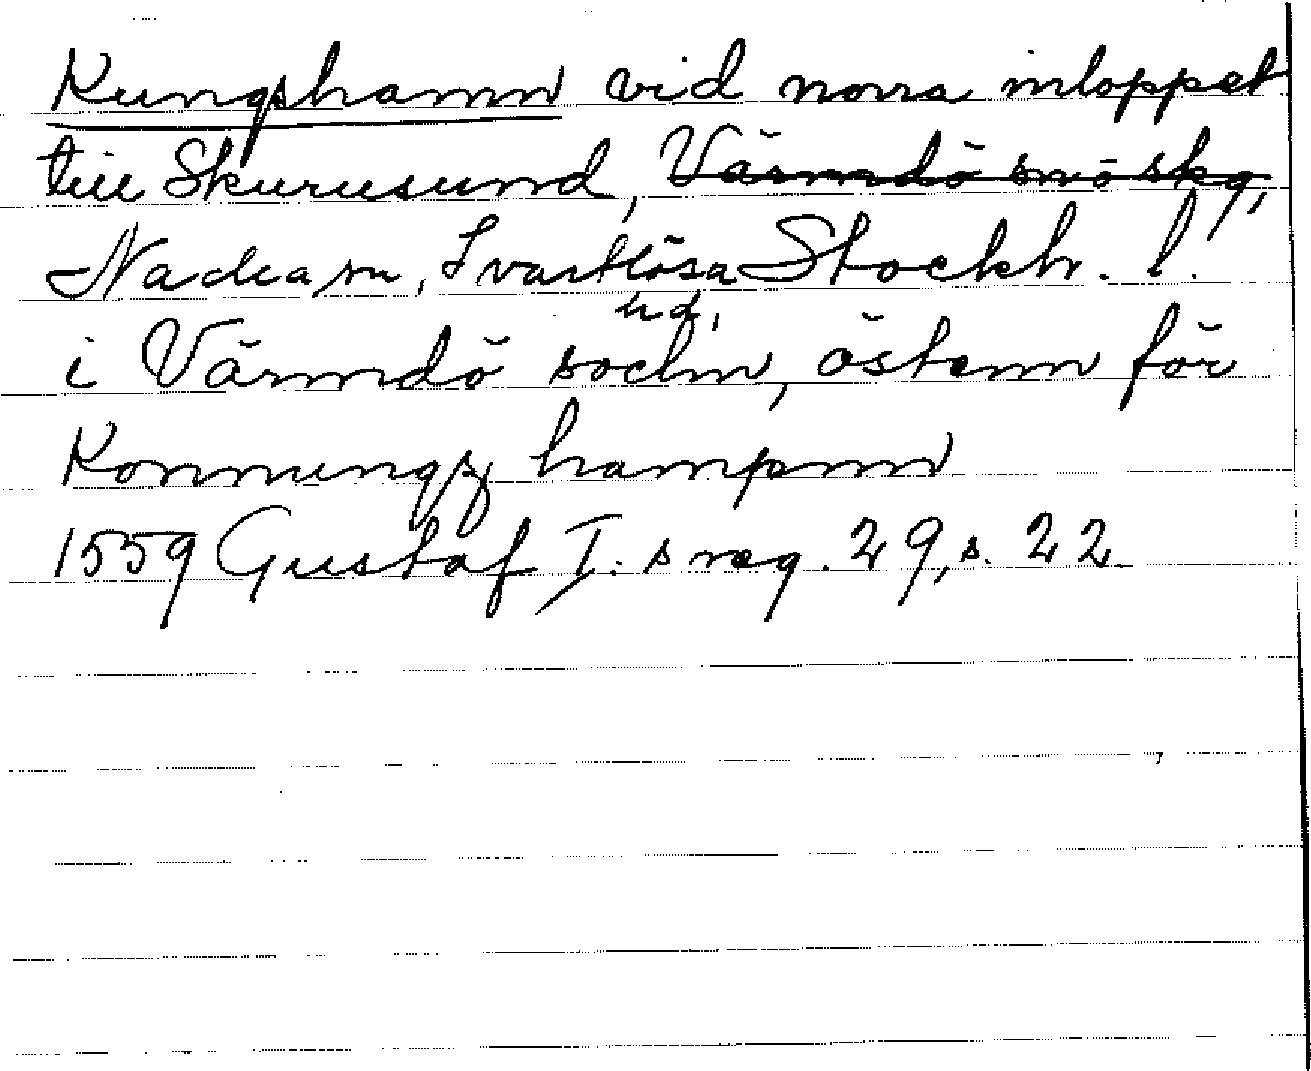 Kungshamn vid norra inloppet
till Skurusund, Värmdö sn ö skg,
Nacka sn, Svartlösa Stockh. l.
hd,
i Värmdö sochn, östenn för
Konnungz hampnn
1559 Gustaf I:s reg. 29, s. 22.